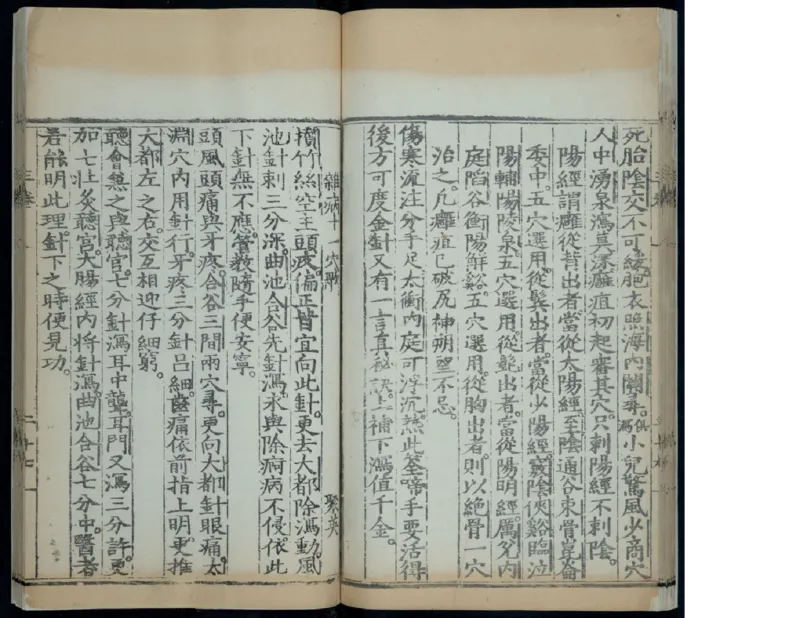 死胎陰交不可緩胞衣照海內關尋俱瀉小兒驚風少商穴
人中湧泉瀉莫深癰疽初起審其穴只刺陽經不刺陰
陽經謂癰從背出者當從太陽經至陰通谷束骨崑崙
委中五穴選用從鬢出者當從少陽經竅陰俠谿臨泣
陽輔陽陵泉五穴選用從髭出者當從陽明經厲兌內
庭陷谷衝陽解谿五穴選用從胸出者則以絶骨一穴
治之凡癰疽已破尻神朔望不忌
傷寒流注分手足太衝內庭可浮沉熟此筌蹄手要活得
後方可度金針又有一言真秘訣上補下瀉值千金
雜病十一穴歌 聚英
攢竹絲空主頭疼偏正皆宜向此針更去大都除瀉動風
池針刺三分深曲池合谷先針瀉永與除痾病不侵依此
下針無不應管教隨手便安寧
頭風頭痛與牙疼合谷三間兩穴尋更向大都針眼痛太
淵穴內用針行牙疼三分針呂細齒痛依前指上明更推
大都左之右交互相迎仔細窮
聽會兼之與聽宮七分針瀉耳中聾耳門又瀉三分許更
加七壯灸聽宮大腸經內將針瀉曲池合谷七分中醫者
若能明此理針下之時便見功
三卷
二十七